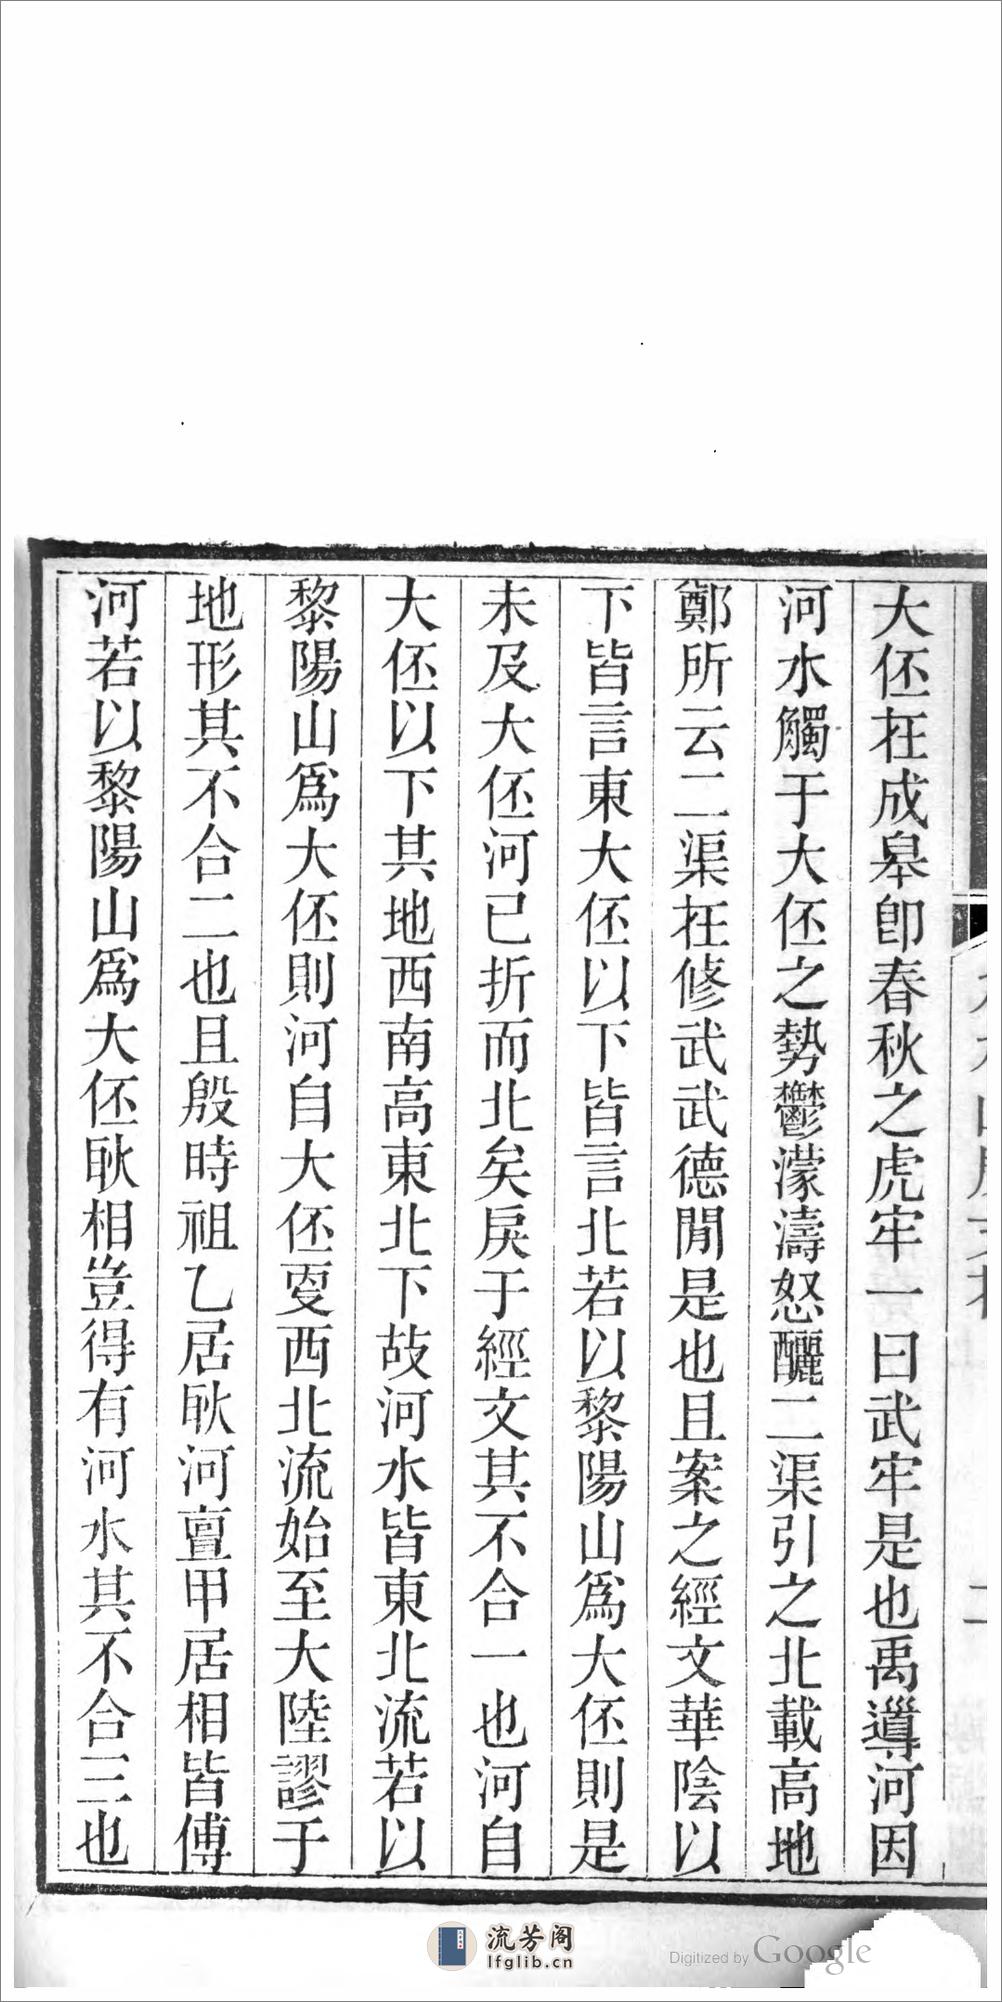 大伾在成皋卽春秋之虎牢一曰武牢是也禹導河因
河水觸于大伾之勢鬱濛濤怒釃二渠引之北載高地
鄭所云二渠在修武武德閒是也且案之經文華陰以
下皆言東大伾以下皆言北若以黎陽山爲大伾則是
未及大伾河已折而北矣戾于經文其不合一也河自
大伾以下其地西南高東北下故河水皆東北流若以
黎陽山爲大伾則河自大伾㪅西北流始至大陸謬于
地形其不合二也且殷時祖乙居耿河亶甲居相皆傅
河若以黎陽山爲大伾耿相豈得有河水其不合三也
二
流芳阁
lfglib.cn
Digitized by Google